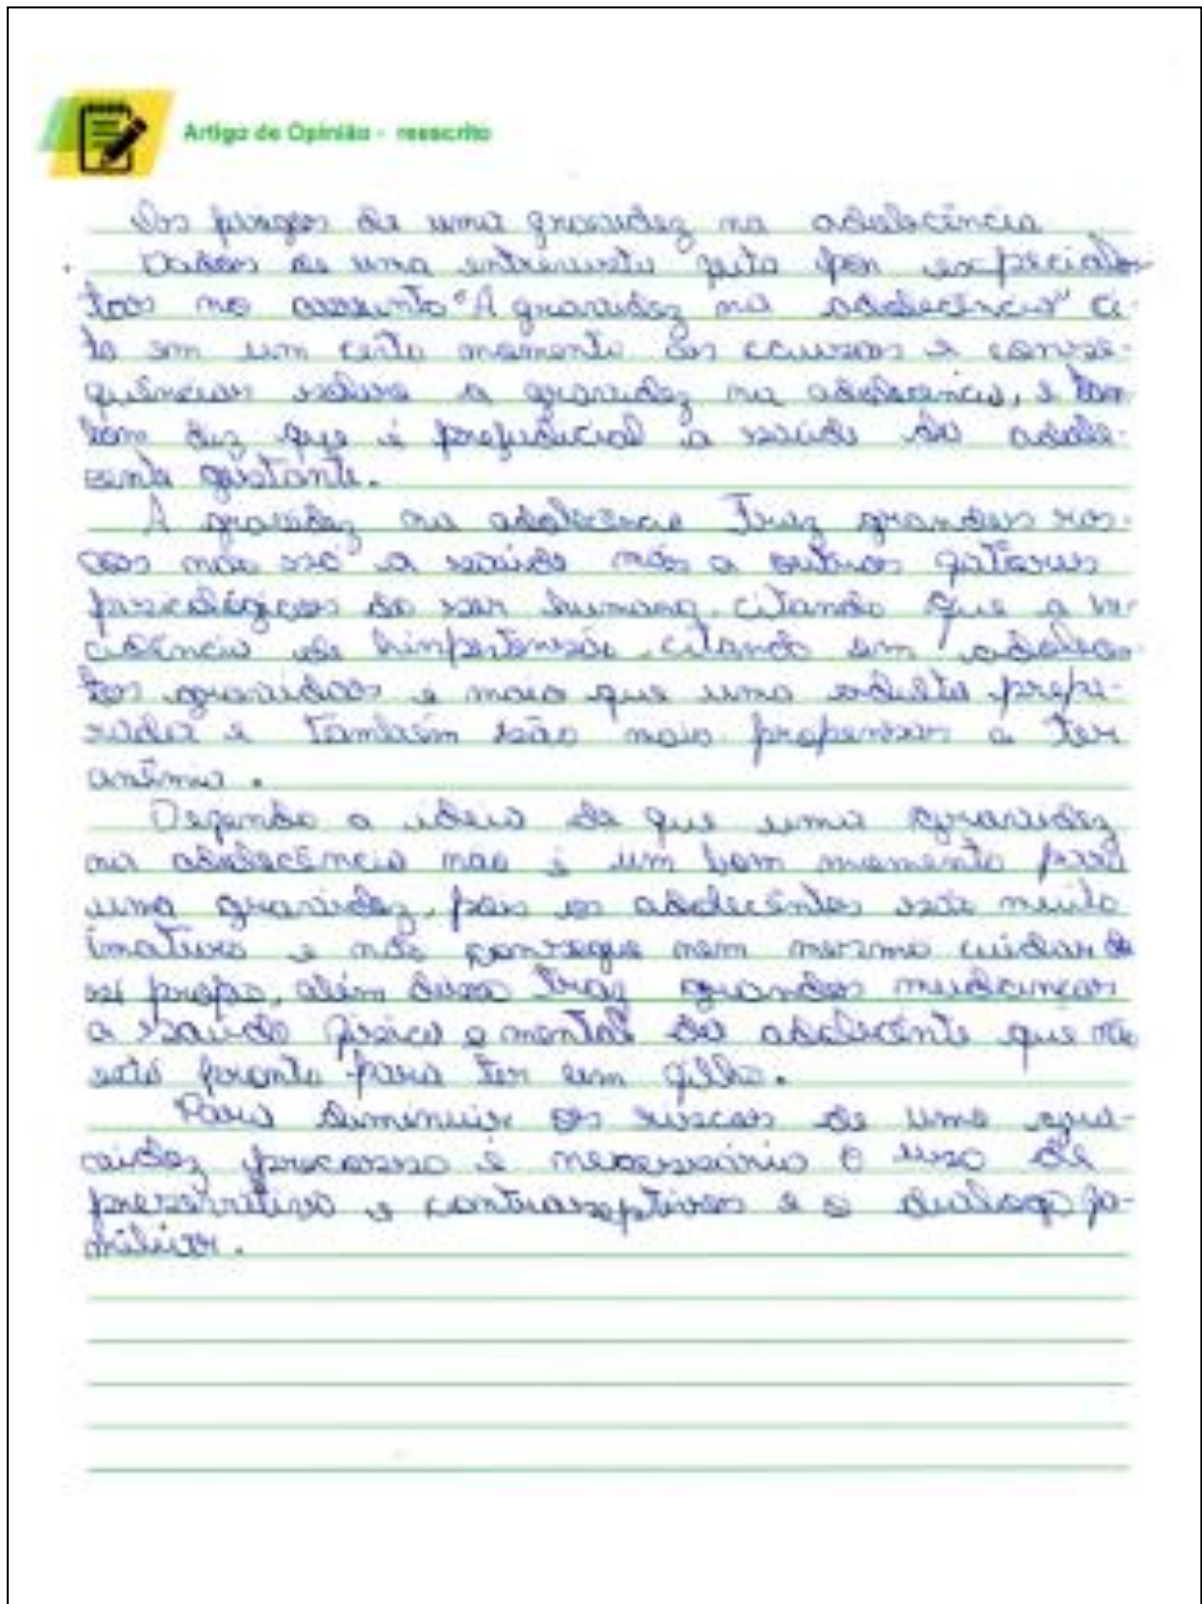 Artigo de Opinião - reescrito
Os perigos de uma gravidez na adolecência
Dados de uma entrevista feita por expecialis-
tas no assunto "A gravidez na adolecência" ci-
ta em um certo momento as causas e conse-
quências sobre a gravidez na adolecencia, e tam
bem diz que é prejudicial a saúde da adole-
cente gestante.
A gravidez na adolecência traz grandes ris-
cos não só a saúde mas a outros fatores
psicológicos do ser humano, citando que a in
cidência de hinpertensão, citando em adolecen-
tes gravidas é maio que uma adulta prepa-
radas e também são mais propensas a ter
anêmia.
Defendo a ideia de que uma gravidez
na adolecência nao é um bom momento para
uma gravidez, pois os adolecêntes são muito
imaturo e não consegue nem mesmo cuidar de
si propio, além disso traz grandes mudanças
a saúde física e mental da adolecênte que não
está pronta para ter um filho.
Para diminuir os riscos de uma gra-
videz precosse é necessário o uso de
preservativo e contraseptivos e o dialogo fa-
miliar.